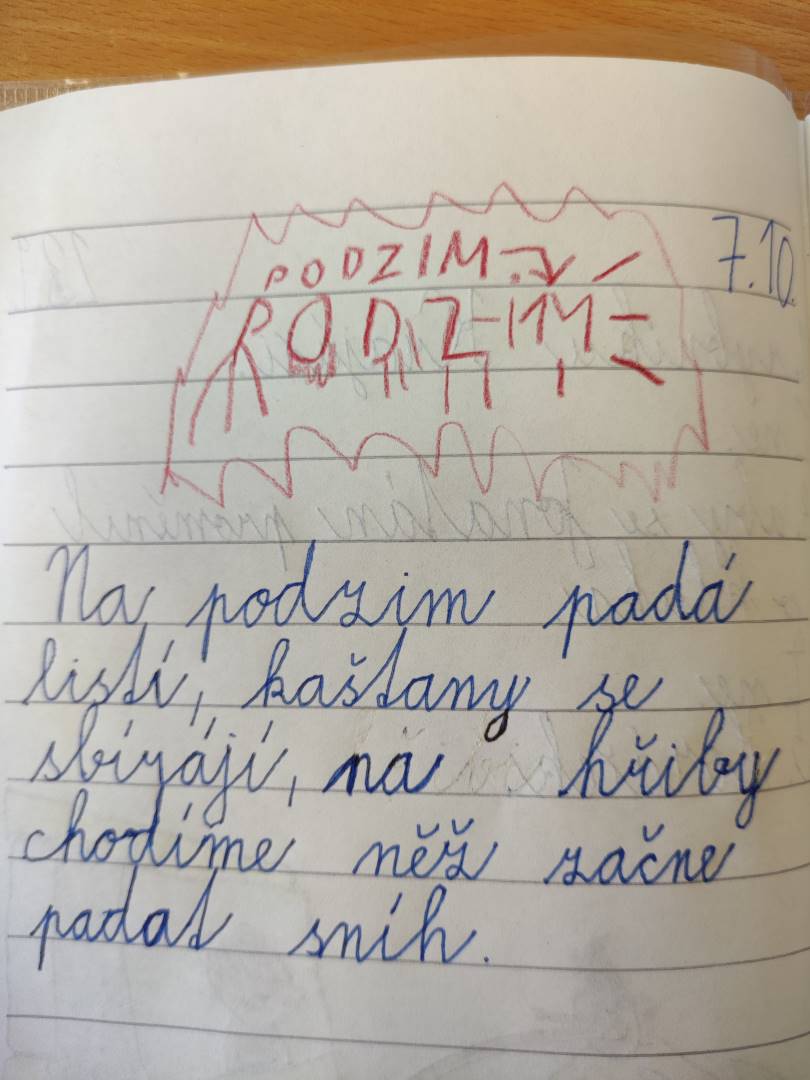 7.10.
PODZIM
PODZIM
Na podzim padá
listí, kaštany se
sbírájí, na hřiby
chodíme něž začne
padat sníh.